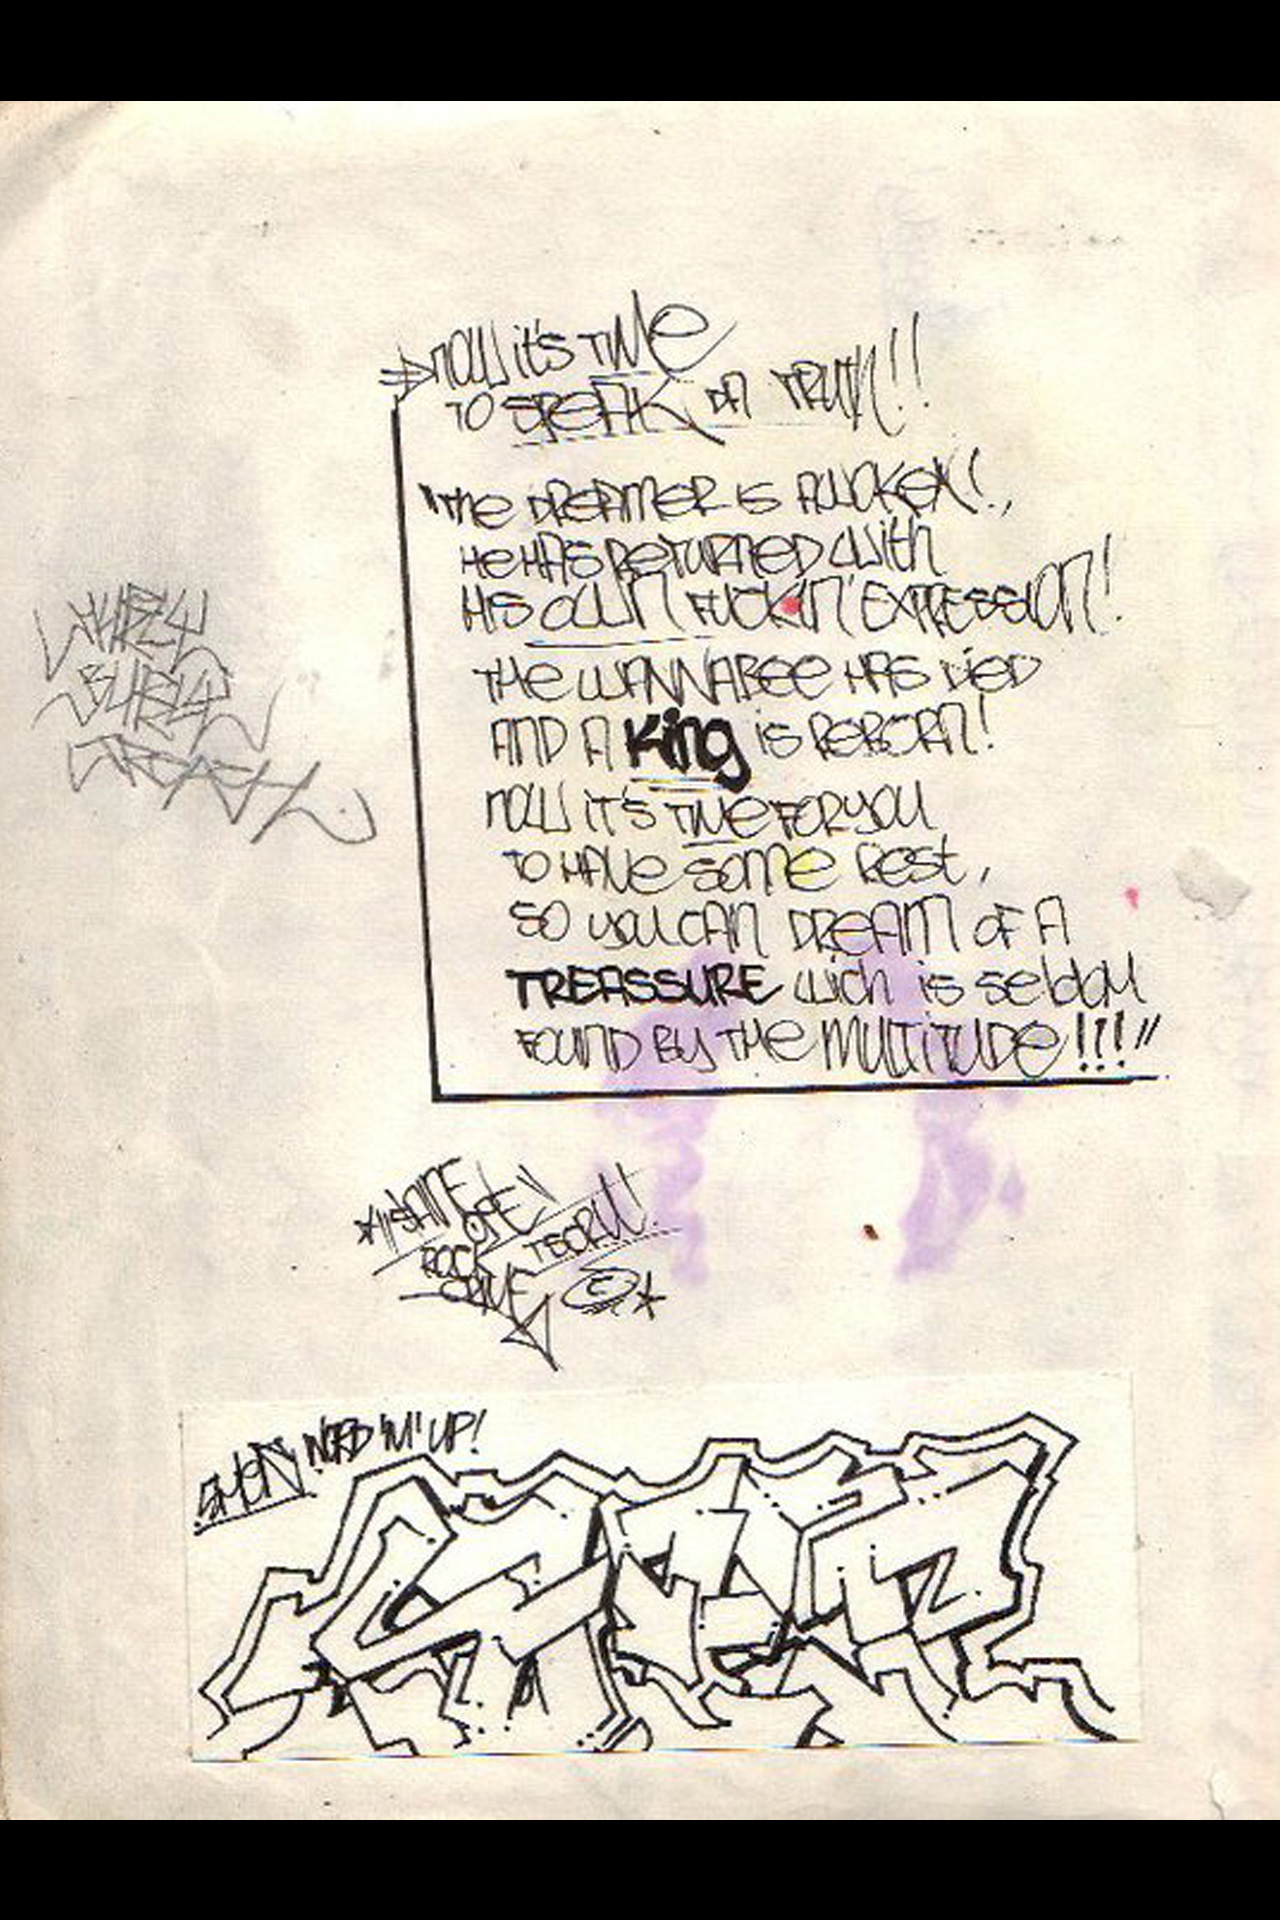 NOW it's TiMe
TO SPeAK DA TRUTH!!
"THe DREAMER IS AWOKEN!.,
He HAS ReTURNeD With
HiS OWN FUCKiN' EXPRESSiON!
THe WANNABee HAS DieD
AND A King iS REBORN!
NOW iT'S TiMe FOR YOU
TO HAVe SOMe ReSt,
SO YOU CAN DReAM OF A
TREASSURE Wich is SeldOM
FOUND BY THe MULTiTUDe!!!"
HURLY
BURLY
ROCK
WORD 'M' UP!